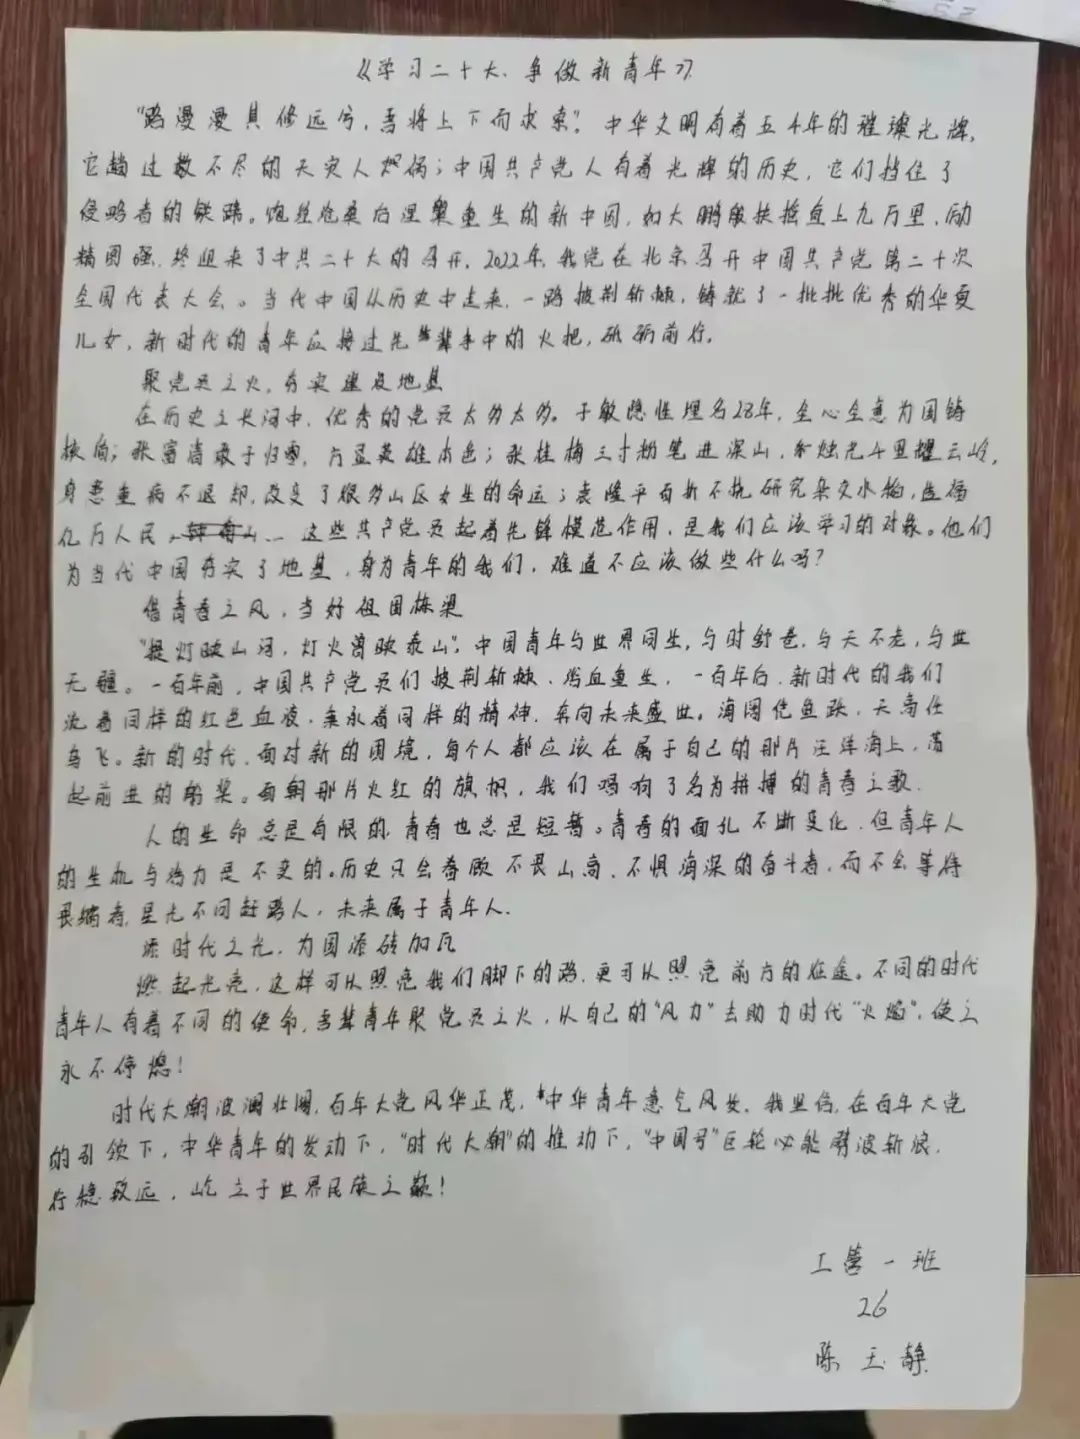 《学习二十大、争做新青年》
"路漫漫其修远兮,吾将上下而求索"。中华文明有着五千年的璀璨光辉,
它趟过数不尽的天灾人祸;中国共产党人有着光辉的历史,它们挡住了
侵略者的铁蹄。饱经沧桑后涅槃重生的新中国,如大鹏般扶摇直上九万里,励
精图强,终迎来了中共二十大的召开,2022年,我党在北京召开中国共产党第二十次
全国代表大会。当代中国从历史中走来,一路披荆斩棘,铸就了一批批优秀的华夏
儿女,新时代的青年应接过先辈手中的火把,砥砺前行。
聚党员之火,夯实建设地基
在历史之长河中,优秀的党员太多太多。于敏隐姓埋名28年,全心全意为国铸
核盾;张富清敢于归零,方显英雄本色;张桂梅三寸粉笔进深山,烛光斗里耀云岭,
身患重病不退却,改变了很多山区女生的命运;袁隆平百折不挠研究杂交水稻,造福
亿万人民……这些共产党员起着先锋模范作用,是我们应该学习的对象。他们
为当代中国夯实了地基,身为青年的我们,难道不应该做些什么吗?
借青春之风,当好祖国栋梁
"提灯映山河,灯火曾映泰山"。中国青年与世界同生,与时舒卷,与天不老,与世
无疆。一百年前,中国共产党员们披荆斩棘,浴血重生,一百年后,新时代的我们
流着同样的红色血液,秉承着同样的精神,奔向未来盛世。海阔凭鱼跃,天高任
鸟飞。新的时代,面对新的困境,每个人都应该在属于自己的那片汪洋海上,荡
起前进的船桨。面朝那片火红的旗帜,我们唱响了名为拼搏的青春之歌.
人的生命总是有限的,青春也总是短暂。青春的面孔不断变化,但青年人
的生机与活力是不变的。历史只会眷顾不畏山高、不惧海深的奋斗者,而不会等待
畏缩者,星光不问赶路人,未来属于青年人.
添时代之光,为国添砖加瓦
燃起光亮,这样可以照亮我们脚下的路,更可以照亮前方的征途。不同的时代
青年人有着不同的使命,吾辈青年聚党员之火,以自己的"风力"去助力时代"火焰",使之
永不停熄!
时代大潮波澜壮阔,百年大党风华正茂,中华青年意气风发.我坚信,在百年大党
的引领下,中华青年的发动下,"时代大潮"的推动下,"中国号"巨轮必能劈波斩浪,
行稳致远,屹立于世界民族之巅!
工营一班
26
陈玉静